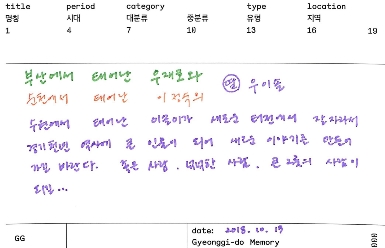 title period category type location
명칭 시대 대분류 중분류 유형 지역
1 4 7 10 13 16 19
부산에서 태어난 우재로와
순천에서 태어난 이정숙의 딸 우이솔
수원에서 태어난 이솔이가 새로운 터전에서 잘 자라서
경기천년 역사에 큰 인물이 되어 새로운 이야기를 만들어
가길 바란다. 좋은 사람, 넉넉한 사람, 큰 그릇의 사람이
되길...
GG date: 2018. 10. 19
Gyeonggi-do Memory 000